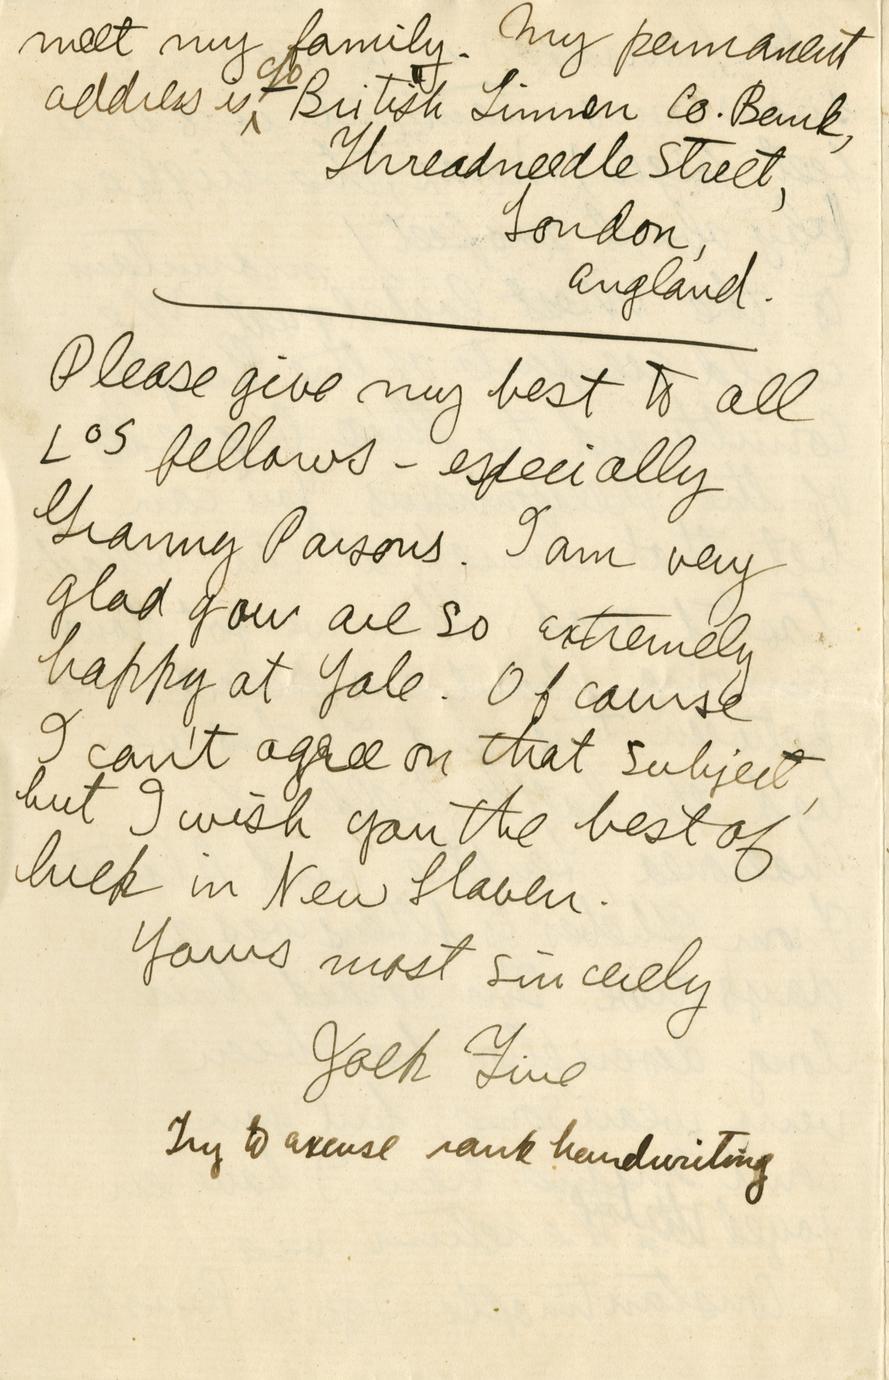 meet my family. My permanent
address is, c/o British Linnen Co. Bank,
Threadneedle Street,
London,
England.
Please give my best to all
LOS fellows - especially
Granny Parsons. I am very
glad you are so extremely
happy at Yale. Of course
I can't agree on that subject,
but I wish you the best of
luck in New Haven.
Yours most sincerely
Jack
Try to excuse rank handwriting